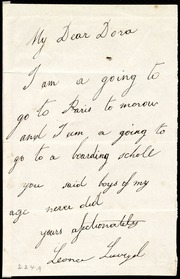 My Dear Dora
I am a going to
go to Paris to morow
and I am a going to
go to a boarding schole
you said boys of my
age never did
yours afectionately